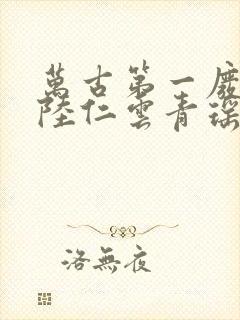 萬古第一廢
陸仁雲青瑤
洛無夜